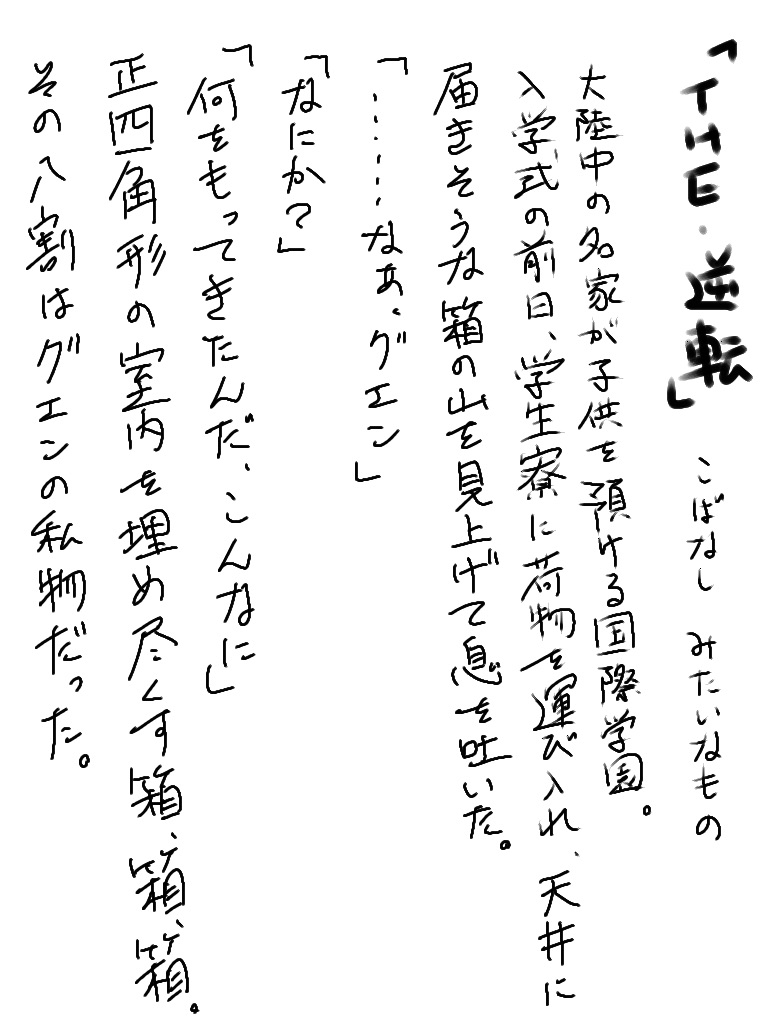 「THE・逆転」 こばなし みたいなもの
大陸中の名家が子供を預ける国際学園。
入学式の前日、学生寮に荷物を運び入れ、天井に
届きそうな箱の山を見上げて息を吐いた。
「……なあ、グエン」
「なにか?」
「何をもってきたんだ、こんなに」
正四角形の室内を埋め尽くす箱、箱、箱。
その八割はグエンの私物だった。